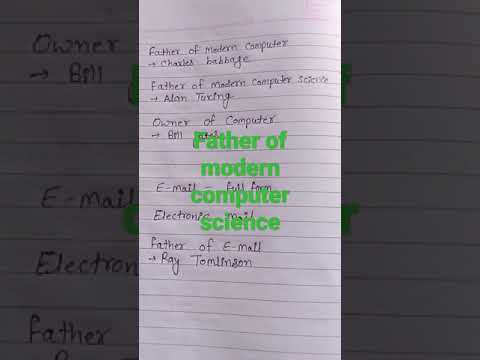 Father of modern Computer
→ Charles babbage
Father of modern Computer Science
→ Alan Turing
Owner of Computer
→ Bill
E-mail - full form
Electronic mail
Father of E-mail
→ Ray Tomlinson
Father of
modern
computer
science
Owner
→ Bill
Electron
father